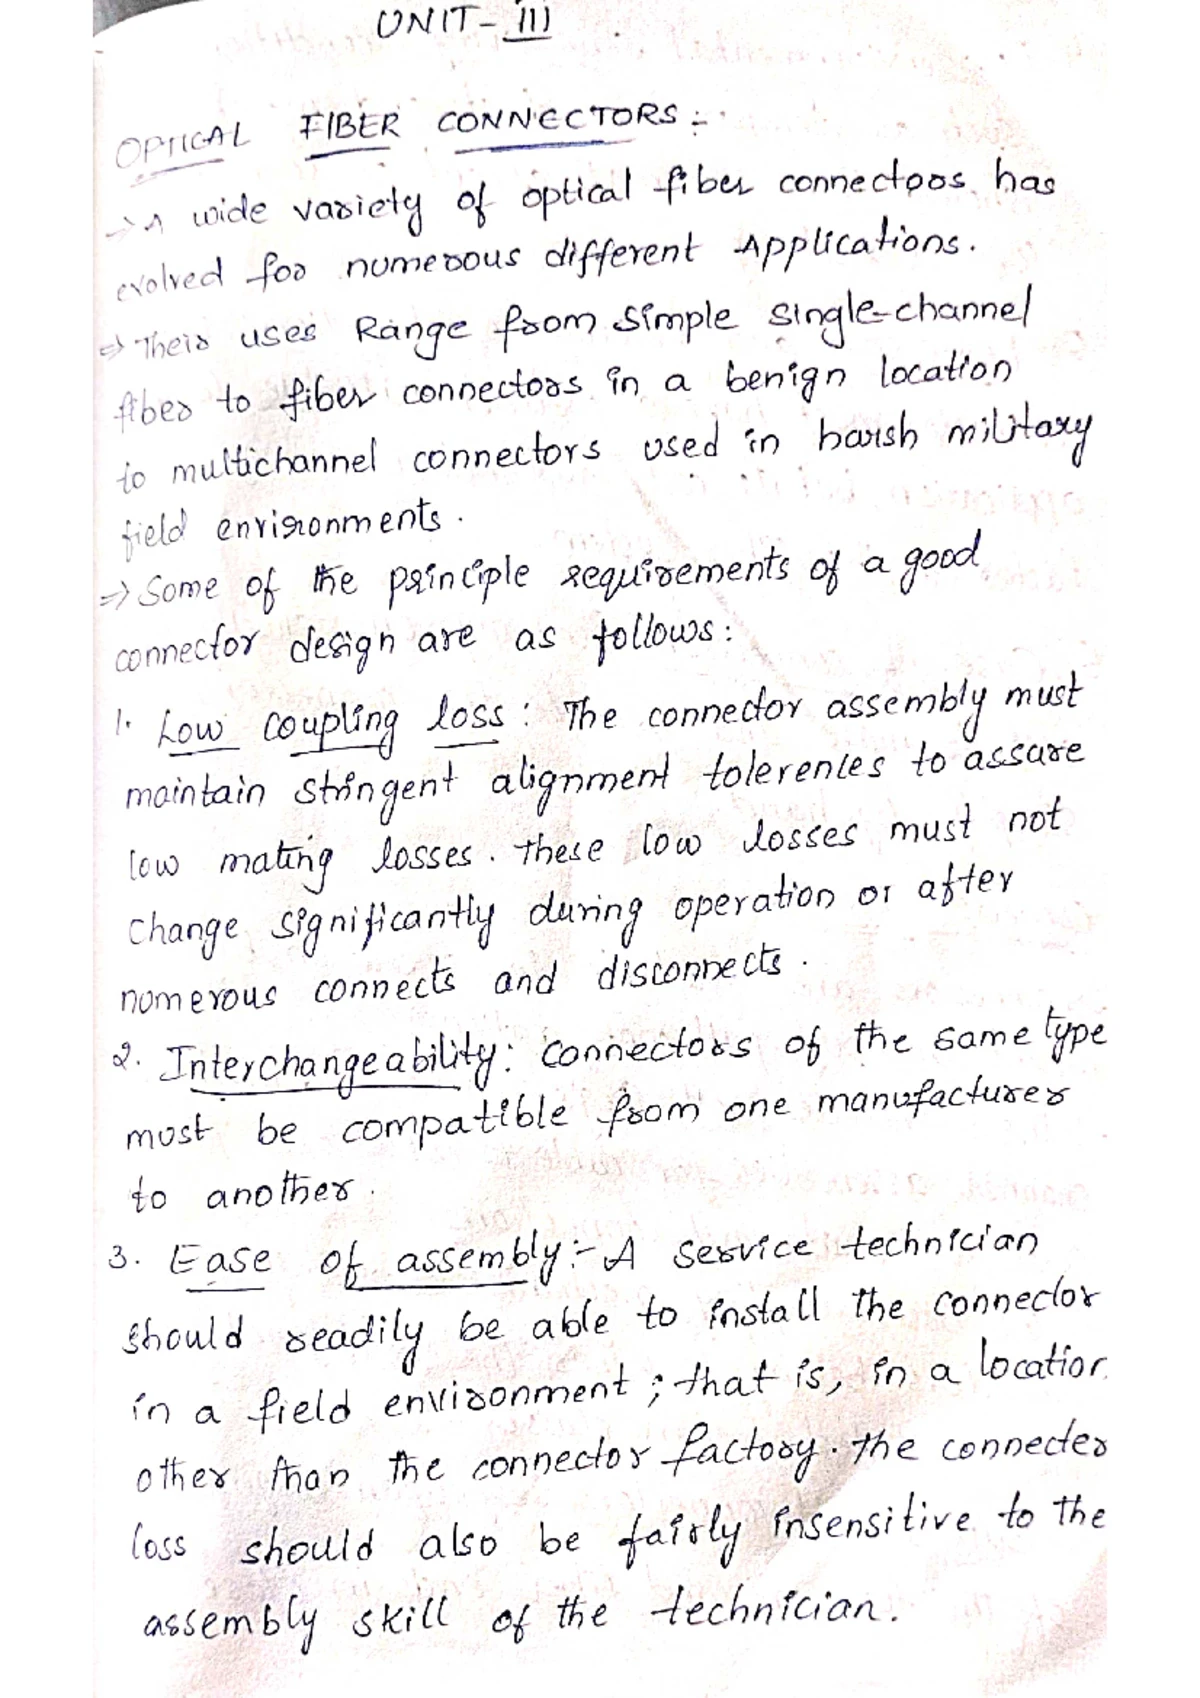 UNIT-III
OPTICAL FIBER CONNECTORS:-
→ A wide variety of optical fiber connectors has
evolved for numerous different Applications.
⇒ Their uses Range from simple single-channel
fiber to fiber connectors in a benign location
to multichannel connectors used in harsh military
field environments.
⇒ Some of the principle requirements of a good
connector design are as follows:
1. Low coupling loss: The connector assembly must
maintain stringent alignment tolerences to assure
low mating losses. These low losses must not
change significantly during operation or after
numerous connects and disconnects.
2. Interchangeability: Connectors of the same type
must be compatible from one manufacturer
to another.
3. Ease of assembly:- A service technician
should readily be able to install the connector
in a field environment; that is, in a location
other than the connector factory. The connecter
loss should also be fairly insensitive to the
assembly skill of the technician.